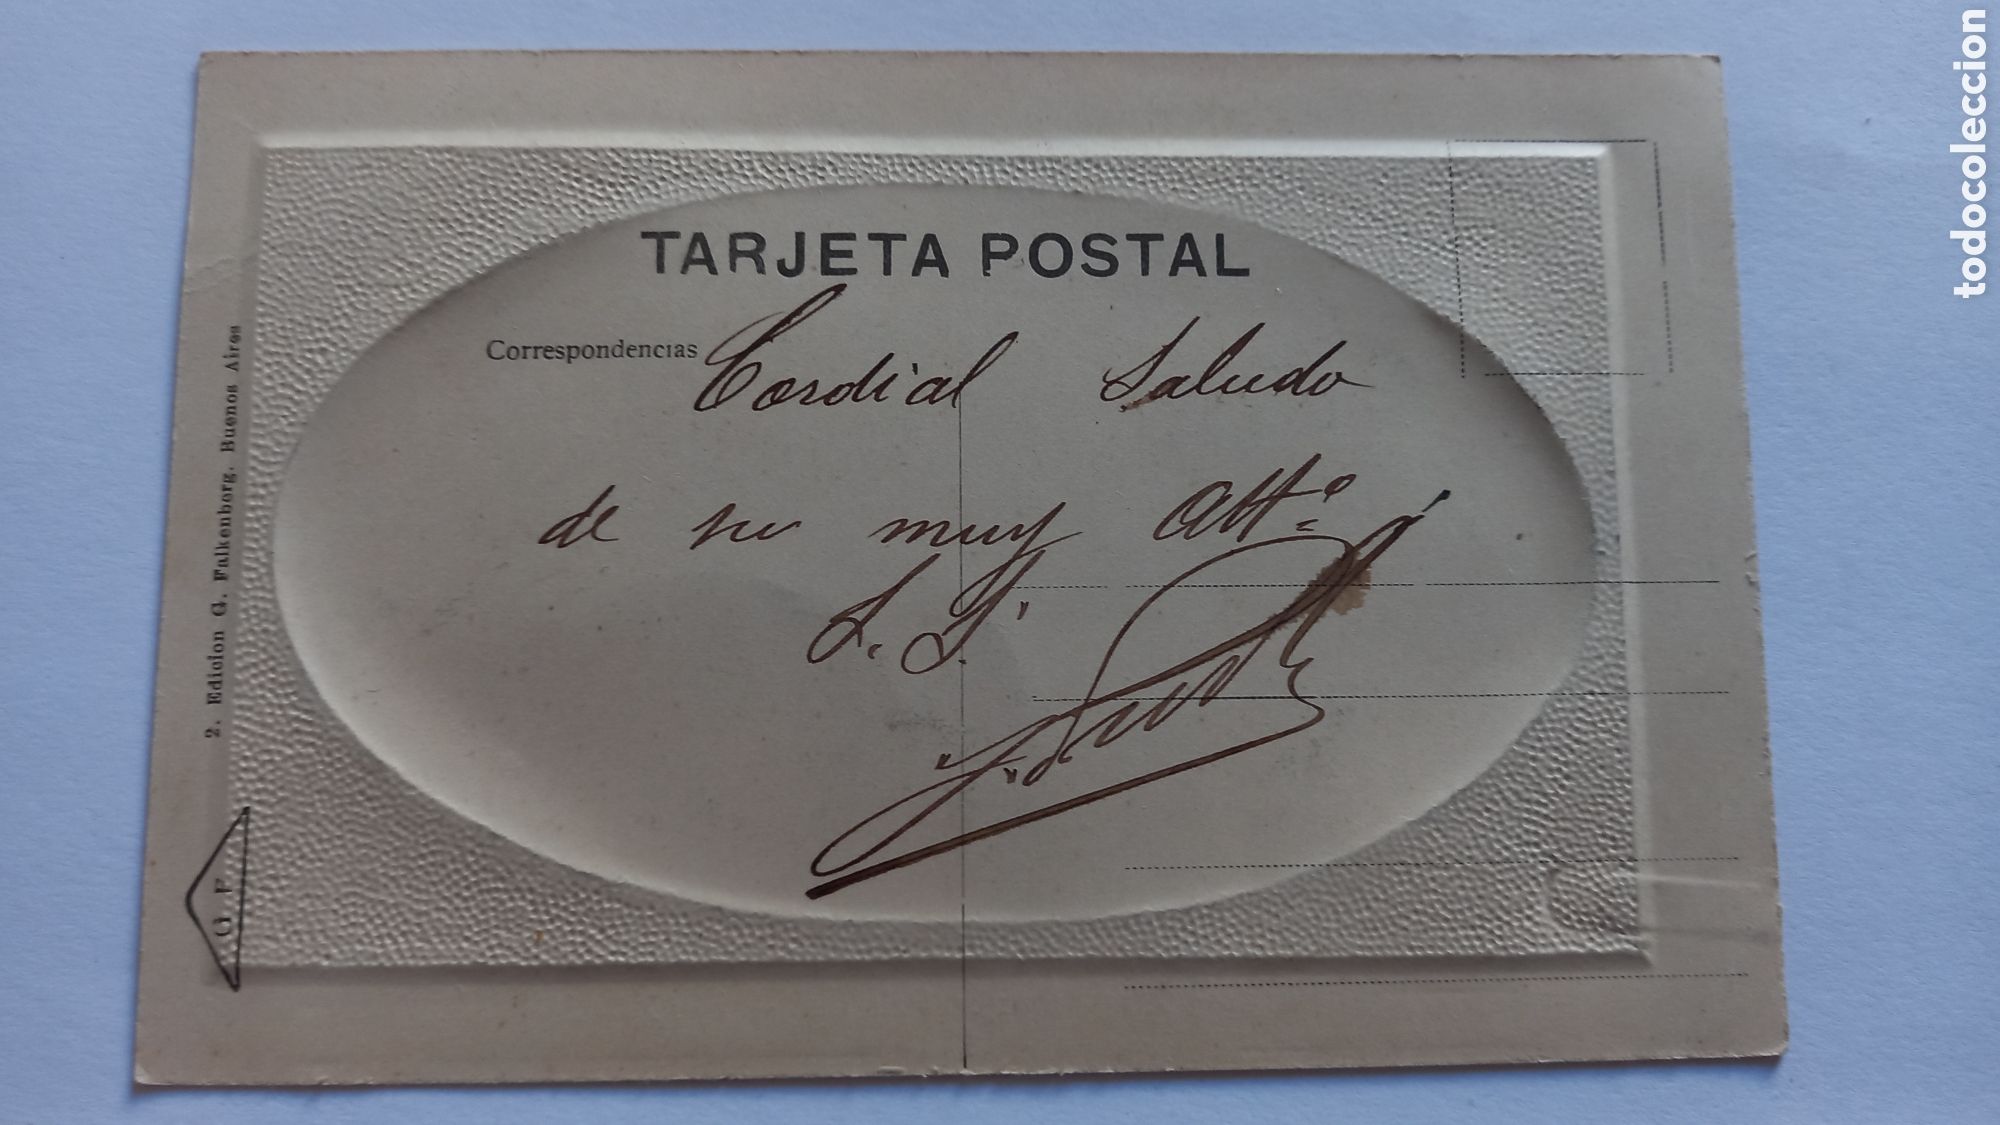 TARJETA POSTAL
Correspondencias Cordial Saludo
de su muy Atto.
S. S.
2. Edicion G. Falkenberg. Buenos Aires
G F
todocoleccion